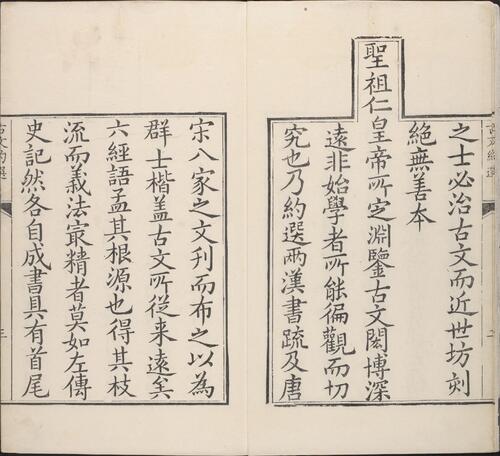 之士必治古文而近世坊刻
絶無善本
聖祖仁皇帝所定淵鑒古文閎博深
遠非始學者所能徧觀而切
究也乃約選兩漢書疏及唐
宋八家之文刋而布之以為
群士楷蓋古文所從来遠矣
六經語孟其根源也得其枝
流而義法㝡精者莫如左傳
史記然各自成書具有首尾
古文約選
三